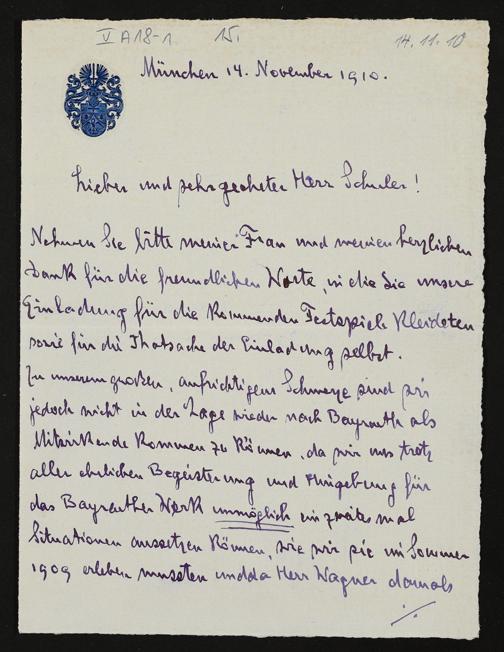 V A 18-1 15. 14.11.10
München 14. November 1910.
Lieber und sehr geehrter Herr Schuler!
Nehmen Sie bitte meiner Frau und meinen herzlichen
Dank für die freundlichen Worte, in die Sie unsere
Einladung für die kommenden Festspiele kleideten
sowie für die Thatsache der Einladung selbst.
Zu unserem großen, aufrichtigem Schmerze sind wir
jedoch nicht in der Lage wieder nach Bayreuth als
Mitwirkende kommen zu können, da wir uns trotz
aller ehrlichen Begeisterung und Hingebung für
das Bayreuther Werk unmöglich ein zweites mal
Situationen aussetzen können, wie wir sie im Sommer
1909 erleben mussten und da Herr Wagner damals
./.